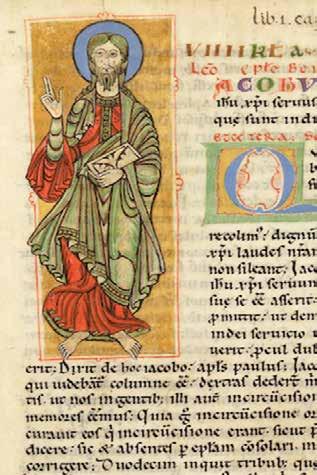 lib. i. ca
VIIII KL A
ACOBV
ihu xpi seruus
quę sunt in di
O
recolim᷒ dignū
xpi laudes nr̄am
non sileant. Jac
ihu xpi seruum
suę se cē asserit
ꝓmittit ut dem
indei seruicio u
uerit ꝓcul dub
erit; Dixit de hoc iacobo apl̄s paulus; Jac
qui uidebāt columne cē dextras dedert m̄
tis ut nos in gentib; illi aut̄ in circūcision
memores cēmus; Quia ꝗ in circūcisione or
curauit eos ꝗ in circūcisione erant sicut p̄
dicere sic & absentes ꝑ eplam c̄solari in
corrigere; Duodecim inquit tribub; que